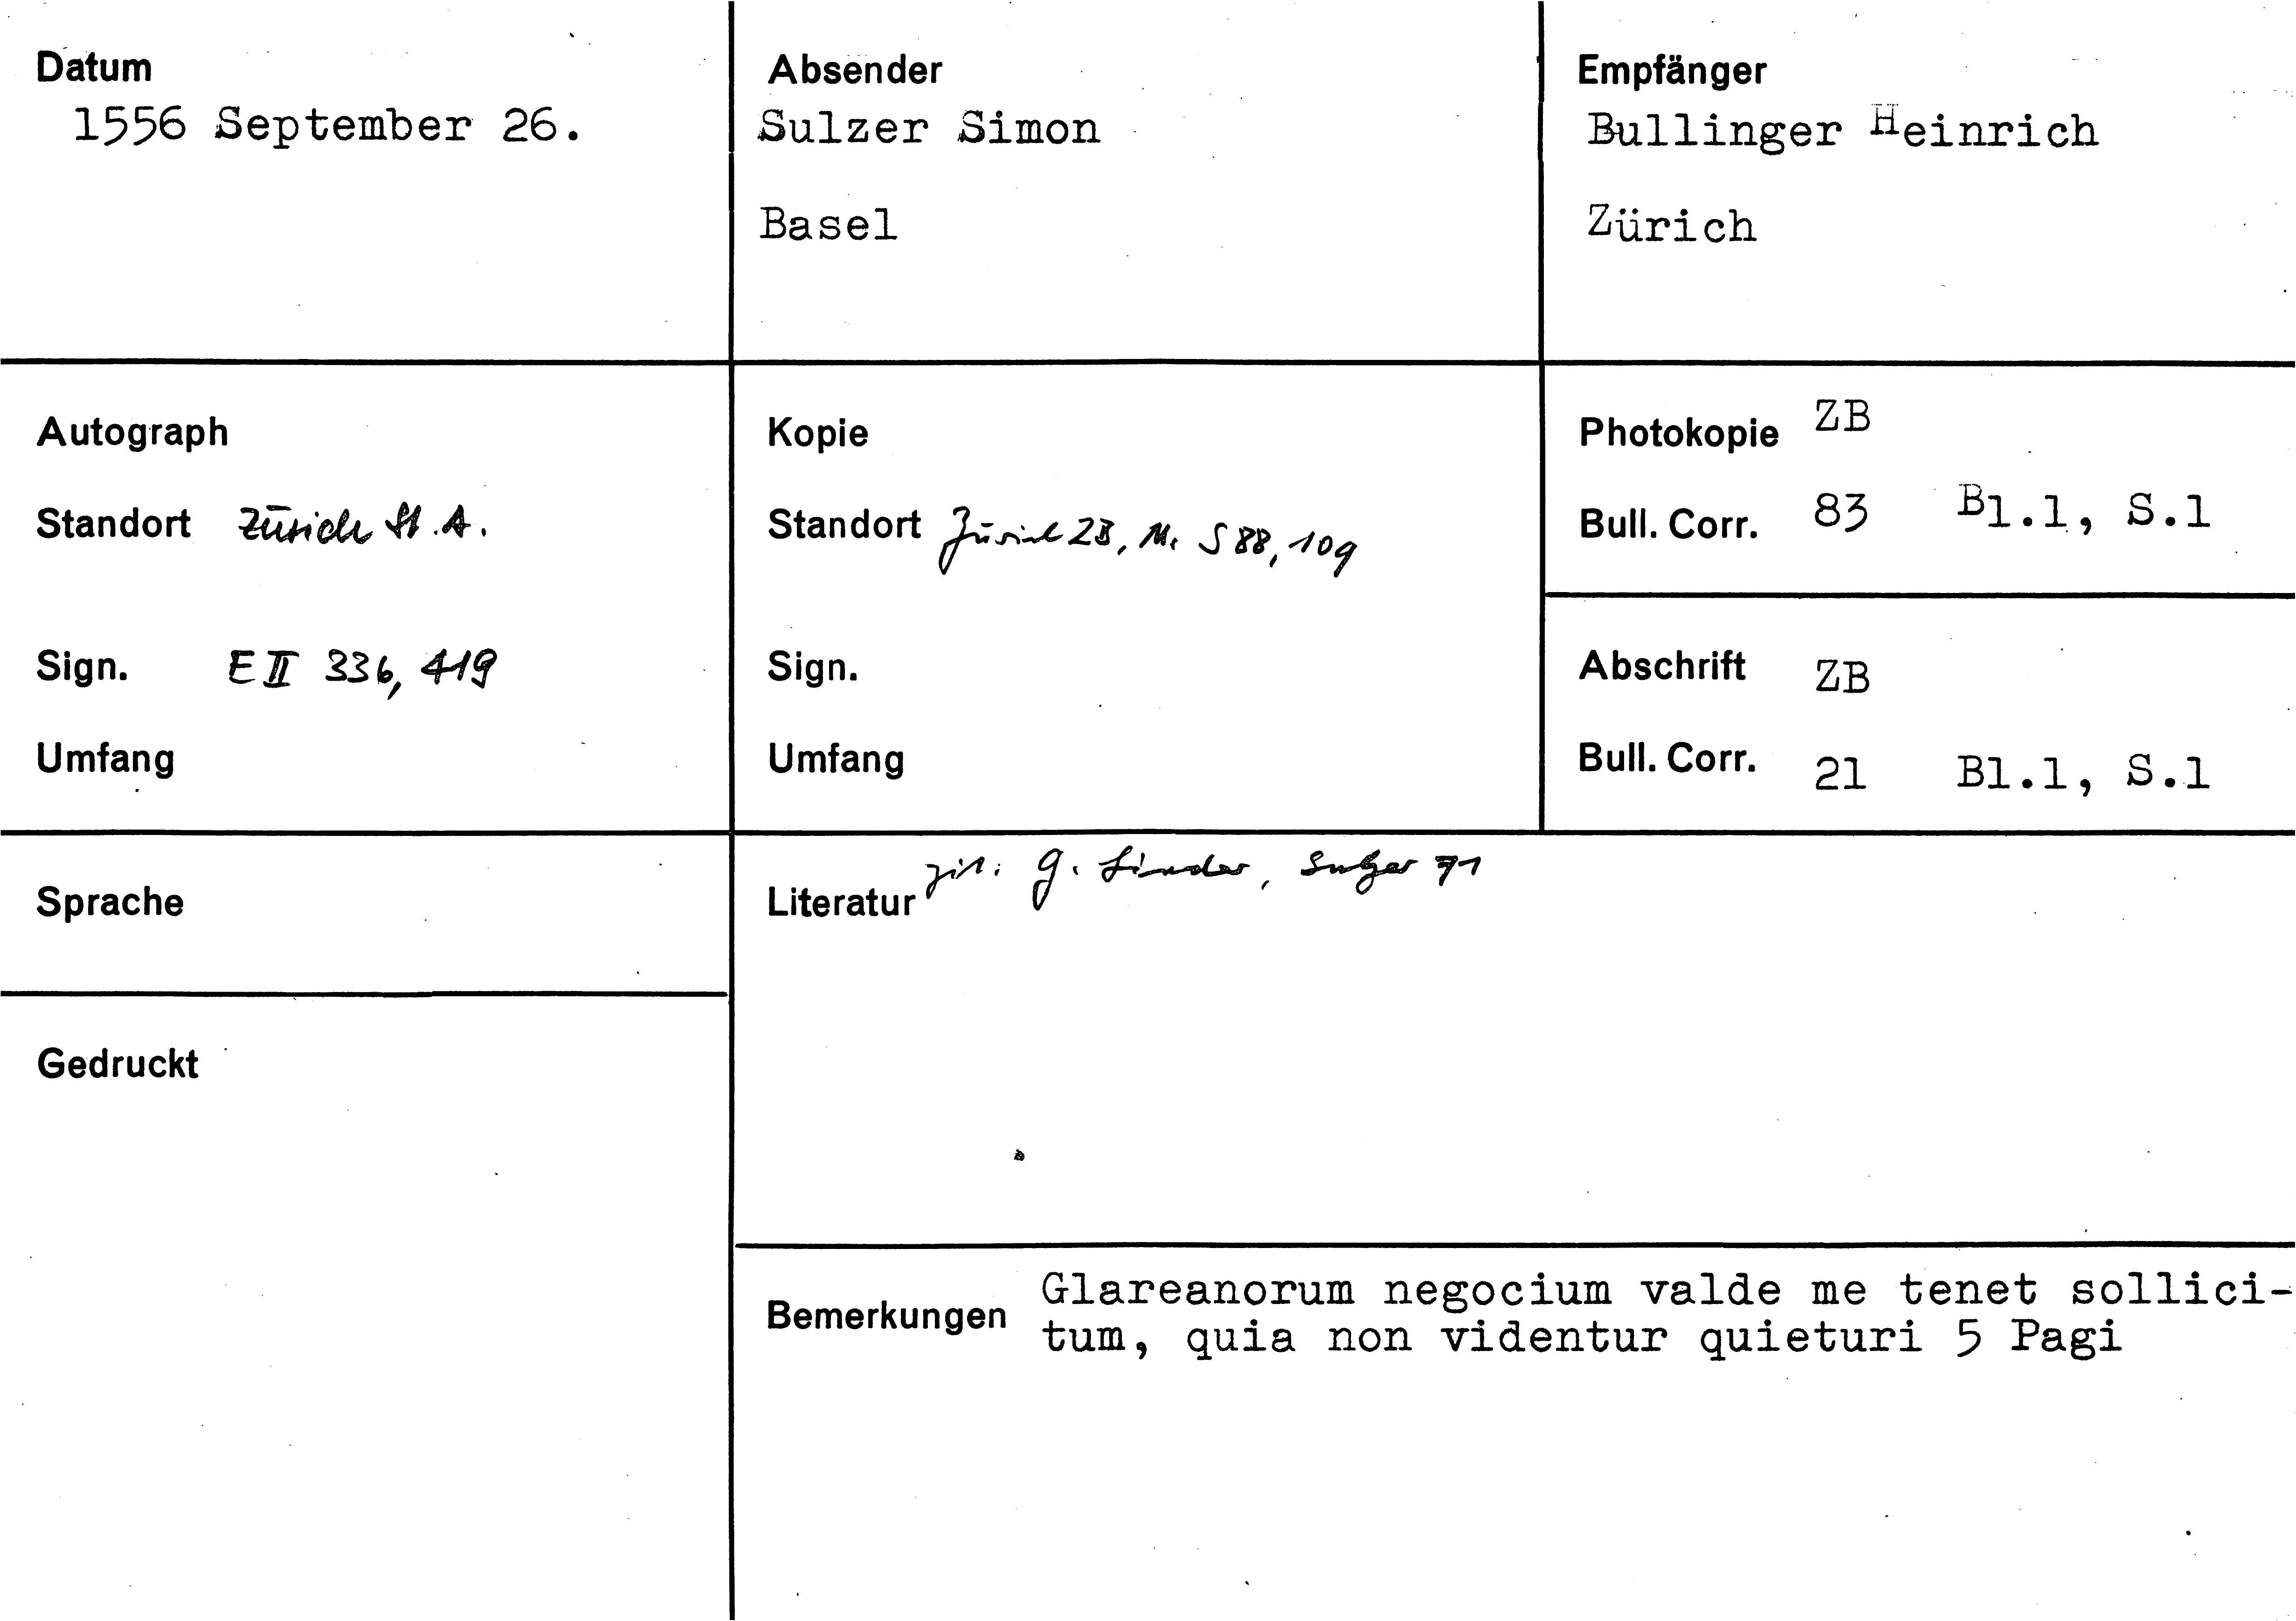 Datum
1556 September 26.
Absender
Sulzer Simon
Basel
Empfänger
Bullinger Heinrich
Zürich
Autograph
Standort Zürich St.A.
Sign. E II 336, 419
Umfang
Kopie
Standort Zürich ZB, Ms S 88, 109
Sign.
Umfang
Photokopie ZB
Bull. Corr. 83 Bl.1, S.1
Abschrift ZB
Bull. Corr. 21 Bl.1, S.1
Sprache
Gedruckt
Literatur zit. G. Linder, Sulzer 71
Bemerkungen Glareanorum negocium valde me tenet sollici-
tum, quia non videntur quieturi 5 Pagi